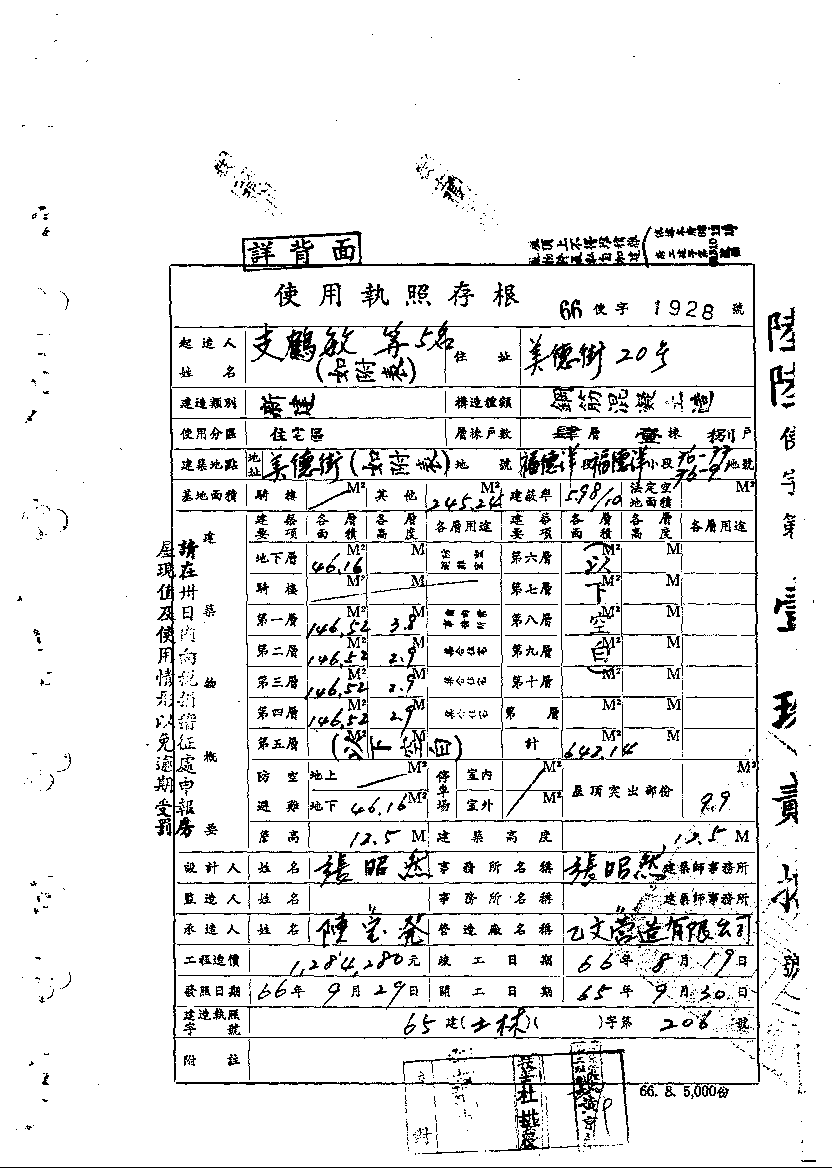 詳背面
使用執照存根 66使字1928號
起造人姓名 支鶴敏等5名(如附表) 住址 美德街20号
建造類別 新建 構造種類 鋼筋混凝土造
使用分區 住宅區 層棟戶數 肆層壹棟捌戶
建築地點 地址 美德街(如附表) 地號 福德洋段福德洋小段76-77 76-9地號
基地面積 騎樓 M² 其他 245.24 M² 建蔽率 5.98/10 法定空地面積 M²
建築物概要
建築要項 各層面積 各層高度 各層用途 建築要項 各層面積 各層高度 各層用途
地下層 46.16 M² M 第六層 (以下空白) M² M
騎樓 M² M 第七層 M² M
第一層 146.52 M² 3.8 M 第八層 M² M
第二層 146.52 M² 2.9 M 第九層 M² M
第三層 146.52 M² 2.9 M 第十層 M² M
第四層 146.52 M² 2.9 M 第 層 M² M
第五層 (以下空白) M² M 計 642.14 M² M
防空避難 地上 M² 停車場 室內 M² 屋頂突出部份 9.9 M²
地下 46.16 M² 室外 M²
簷高 12.5 M 建築高度 12.5 M
設計人 姓名 張昭然 事務所名稱 張昭然建築師事務所
監造人 姓名 事務所名稱 建築師事務所
承造人 姓名 陳宝發 營造廠名稱 乙文營造有限公司
工程造價 1,284,280元 竣工日期 66年8月19日
發照日期 66年9月29日 開工日期 65年9月30日
建造執照字號 65建(士林)( )字第206號
附註
66. 8. 5,000份
請在卅日內向稅捐稽征處申報房
屋現值及使用情形以免逾期受罰